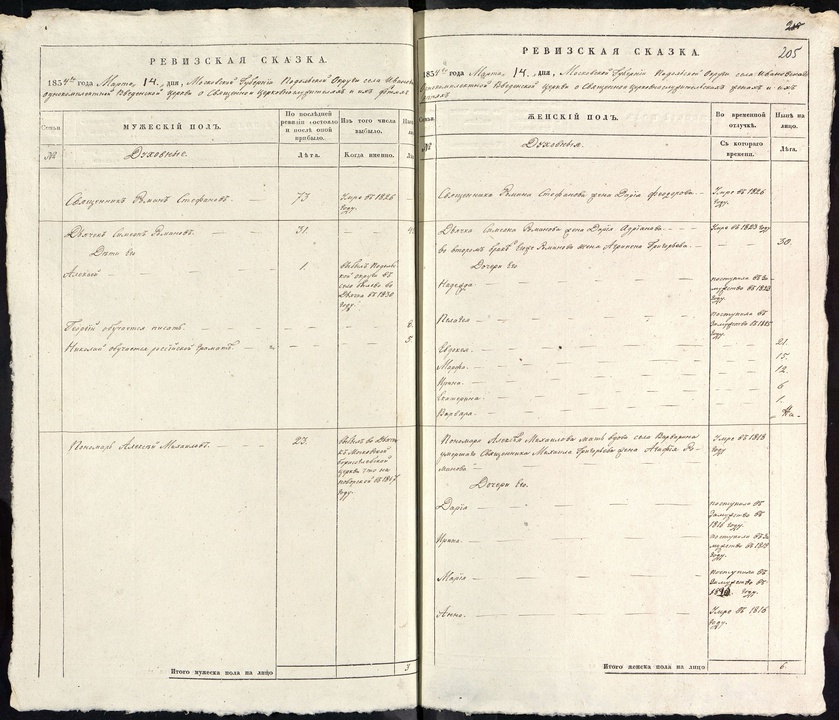 РЕВИЗСКАЯ СКАЗКА.
1834го года Марта 14. дня, Московской Губернiи Подольской Округи села
Введенской церкви о Священно церковнослужителяхъ и ихъ дѣтяхъ
Семьи.
МУЖЕСКIЙ ПОЛЪ.
По послѣдней ревизiи состояло и послѣ оной прибыло.
Изъ того числа выбыло.
№
Духовные.
Лѣта.
Когда именно.
Священникъ Романъ Стефановъ. 73 Умре въ 1826 году.
Дьячекъ Симеонъ Романовъ. 31.
Дѣти Его
Алексѣй 1. выбылъ Подольской округи въ село во Дьячка въ 1830 году.
Георгiй обучается писать 8.
Николай обучается россiйской грамматѣ. 5.
Пономарь Алексѣй Михаиловъ. 23. выбылъ во Дьячка къ Московской церкви что на поварской въ 1817 году.
Итого мужеска пола на лицо 3
208
205
РЕВИЗСКАЯ СКАЗКА.
1834го года Марта 14. дня, Московской Губернiи Подольской Округи села
Введенской церкви о Священно церковнослужительскихъ женахъ и ихъ
дѣтяхъ
Семьи.
ЖЕНСКIЙ ПОЛЪ.
Во временной отлучкѣ.
Нынѣ на лицо.
№
Духовныя.
Съ котораго времени.
Лѣта.
Священника Романа Стефанова жена Дарiя Феодорова. Умре въ 1826 году.
Дьячка Симеона Романова жена Дарiя Адрiанова. Умре въ 1823 году
Во второмъ бракѣ Романова жена Агрипена Григорьева. 30.
Дочери Его
Надежда поступила въ замужество въ 1823 году.
Пелагея поступила въ замужество въ 1825 году.
Евдокея. 21.
Марфа. 15.
Ирина. 12.
Екатерина. 6
Варвара. 1.
Пономаря Алексѣя Михаилова мать вдова села Варварина Умре въ 1818 году
умершаго Священника Михаила Григорьева жена Агафiя Романова
Дочери Его.
Дарiя поступила въ замужество въ 1811 году.
Ирина. поступила въ замужество въ 1813 году.
Марiя поступила въ замужество въ году.
Анна. Умре въ 1816 году.
Итого женска пола на лицо 6.